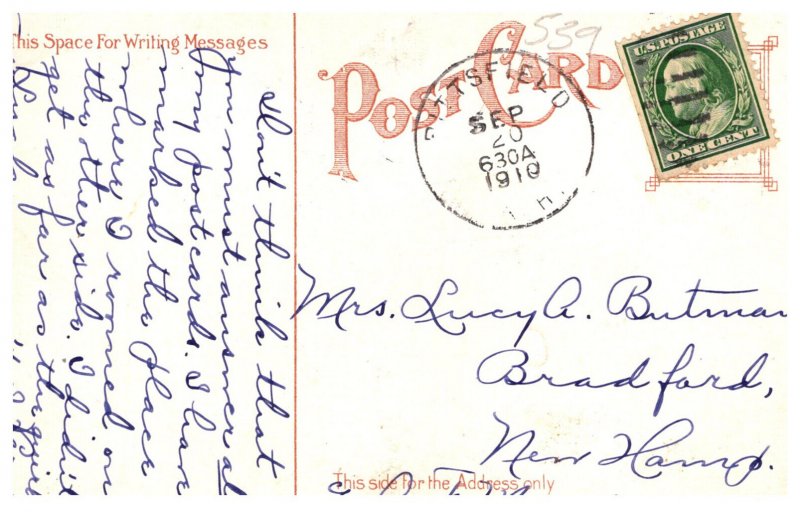 This Space For Writing Messages
POST CARD
539
U.S. POSTAGE
ONE CENT
PITTSFIELD
SEP
20
630A
1910
N. H.
Don't think that
you must answer all
my postcards. I have
marked the place
where I roomed on
the other side. I didn't
get as far as the
Mrs. Lucy A. Butman
Bradford,
New Hamp.
This side for the Address only